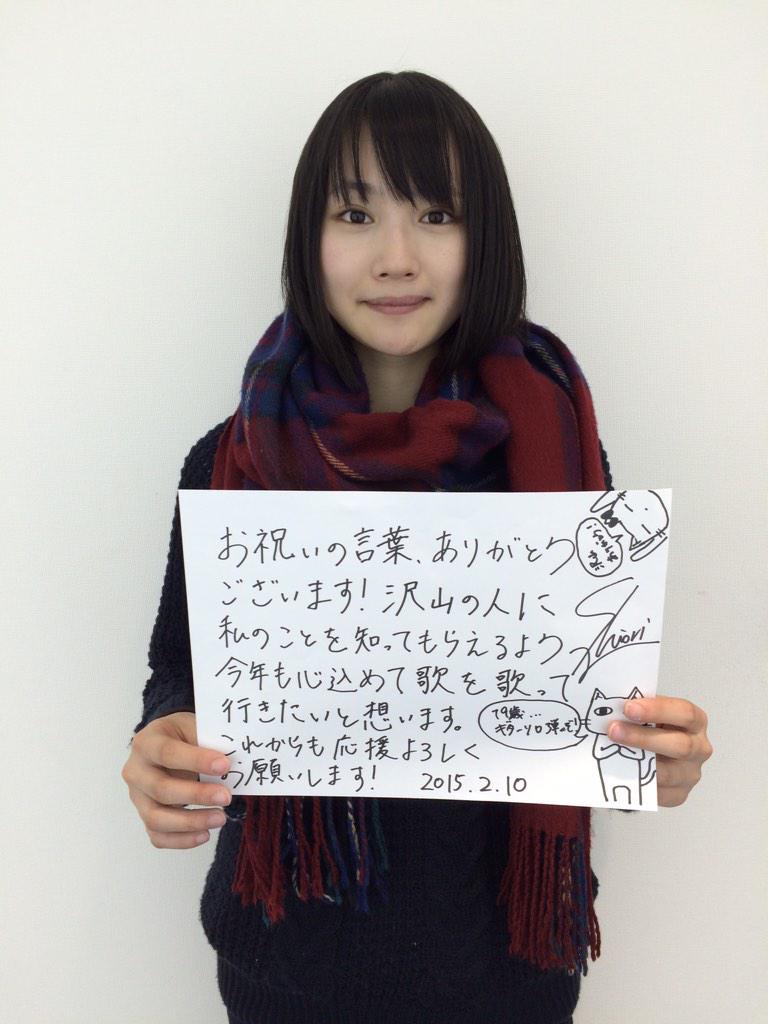 お祝いの言葉、ありがとう
ございます！沢山の人に
私のことを知ってもらえるよう、
今年も心込めて歌を歌って
行きたいと想います。
これからも応援よろしく
お願いします！
2015.2.10
Shiori
19歳…
ギターソロ弾くぞ！